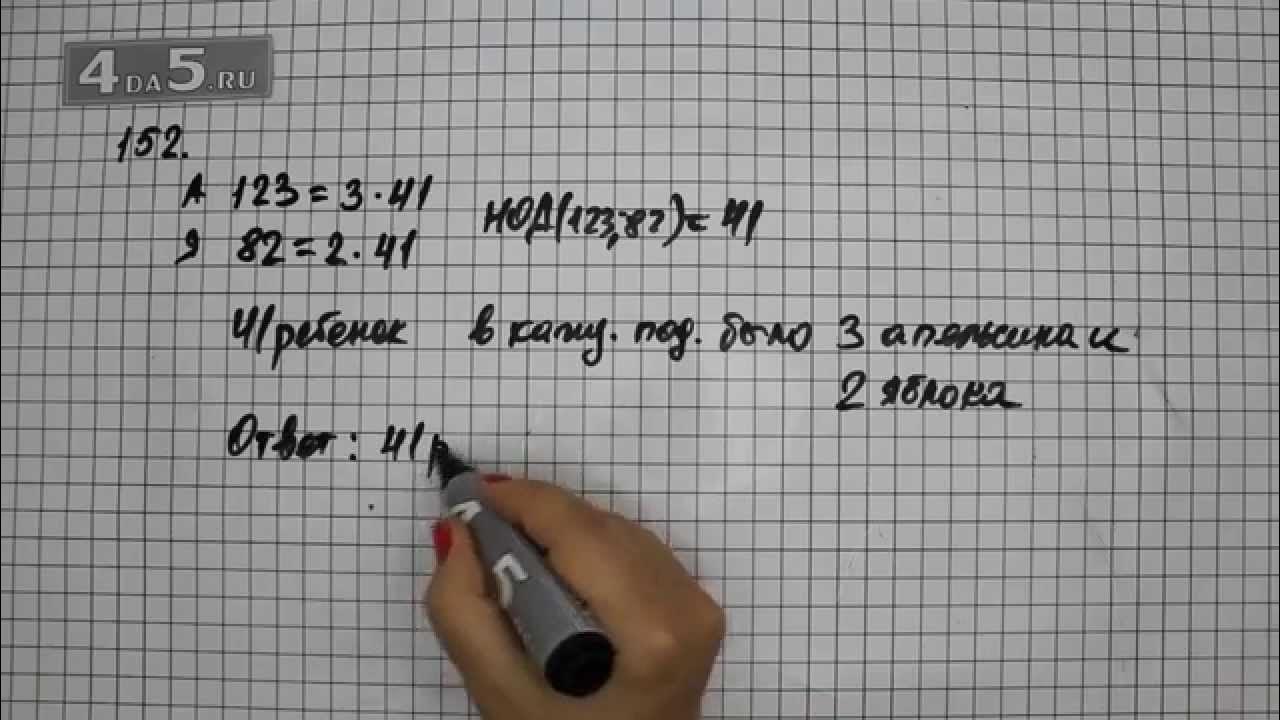 4DA5.RU
152.
А 123 = 3 · 41
Я 82 = 2 · 41
НОД(123,82) = 41
41 ребенок в кажд. под. было 3 апельсина и
2 яблока
Ответ: 41 р